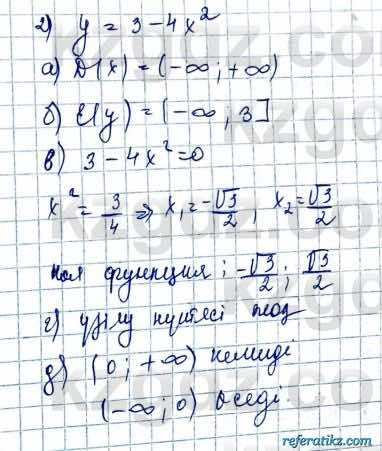 2) y = 3 - 4x²
а) D(x) = (-∞; +∞)
б) E(y) = (-∞; 3]
в) 3 - 4x² = 0
x² = 3/4 ⇒ x₁ = -√3/2; x₂ = √3/2
нол функция: -√3/2; √3/2
г) үзілу нүктесі жоқ
д) (0; +∞) кемиді
(-∞; 0) өседі
referatikz.com